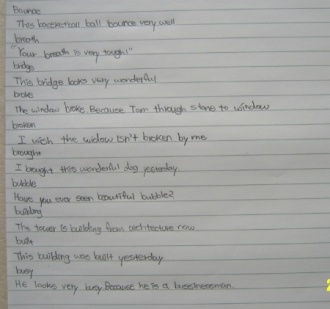 Bounce
This basketball ball bounce very well
breath
"Your breath is very tough!"
bridge
This bridge looks very wonderful
broke
The window broke Because Tom through stone to window
broken
I wish the widow isn't broken by me
brought
I brought this wonderful dog yesterday
bubble
Have you ever seen beautiful bubble?
building
The tower is building from architecture now
built
This building was built yesterday
busy
He looks very busy Because he is a businessman.
2